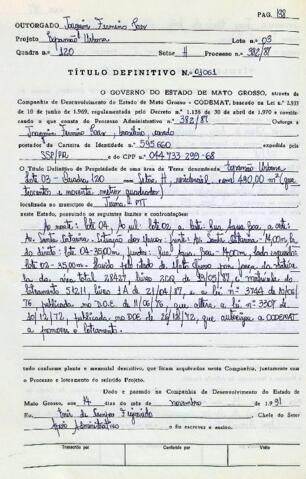 PAG. 198
OUTORGADO Joaquim Firmino Paes
Projeto Expansão Urbana Lote n.o 03
Quadra n.o 120 Setor H Processo n.o 382/81
TÍTULO DEFINITIVO N.o 01061
O GOVERNO DO ESTADO DE MATO GROSSO, através da
Companhia de Desenvolvimento do Estado de Mato Grosso - CODEMAT, baseado na Lei n.o 2.933
de 10 de janeiro de 1969, regulamentada pelo Decreto n.o 1.138 de 30 de abril de 1970 e verificando que consta do Processo Administrativo n.o 382/81 Outorga a
Joaquim Firmino Paes, brasileiro, casado
portador da Carteira de Identidade n.o 595660 expedida por
SSP/PR e do CPF n.o 044 733 299-68
O Título Definitivo de Propriedade de uma área de Terra denominada Expansão Urbana
lote 03 - Quadra 120 Setor H, residencial, com 490,00 m² (quatrocentos e noventa metros quadrados)
localizado no município de Juina MT
neste Estado, possuindo os seguintes limites e confrontações:
Ao norte: lote 04, Ao sul: lote 02 a leste: Rua Água Boa, a oeste:
Av. Santa Catarina. frente: Av. Santa Catarina - 14,00m, la
do direito: lote 04 - 35,00m, fundos: Rua Água Boa - 14,00m, lado esquerdo:
lote 02 - 35,00m.
28427, 19/03/87 e matrícula do
loteamento 51211, livro 2A de 21/04/87, e a lei n.o 3744 de 10/06/
76 publicada no D.O.E de 11/06/76, que altera a lei n.o 3307 de
10/12/72, publicada no DOE de 26/12/72, que autoriza a CODEMAT
a promover o loteamento.
tudo conforme planta e memorial descritivo, que ficam arquivados nesta Companhia, juntamente com
o Processo e loteamento do referido Projeto.
Dado e passado na Companhia de Desenvolvimento do Estado de
Mato Grosso, aos 14 dias do mês de novembro de 1991
Eu, de Campos Figueiredo Chefe do Setor
Apoio Administrativo o fiz escrever e assino.
Transcrito por Conferido por Visto